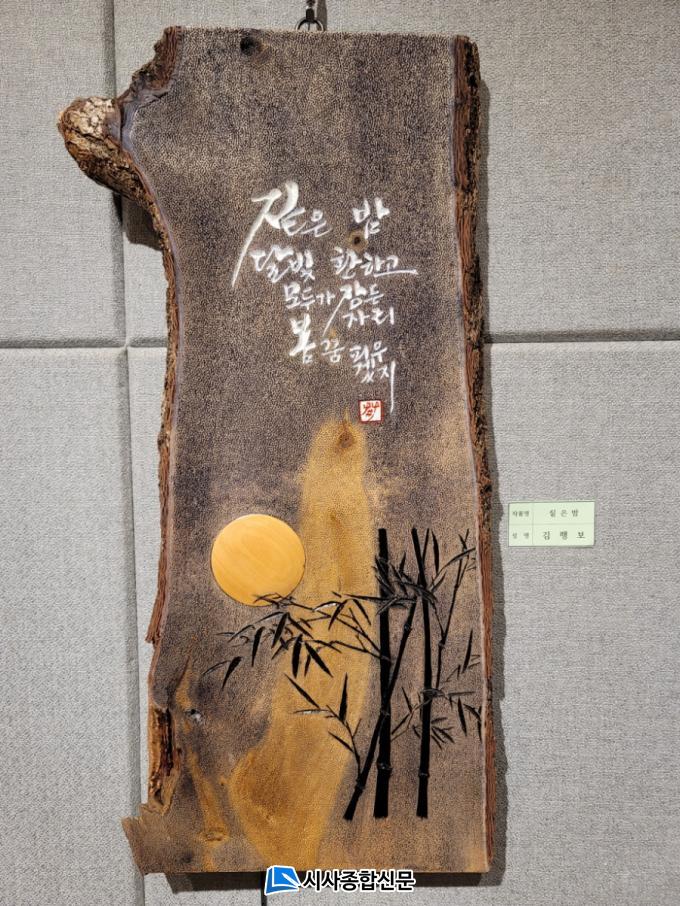 짙은 밤
달빛 환하고
모두가 잠든
자리
봄 꿈 피우
겠지
작품명 짙은밤
성 명 김행보
시사종합신문